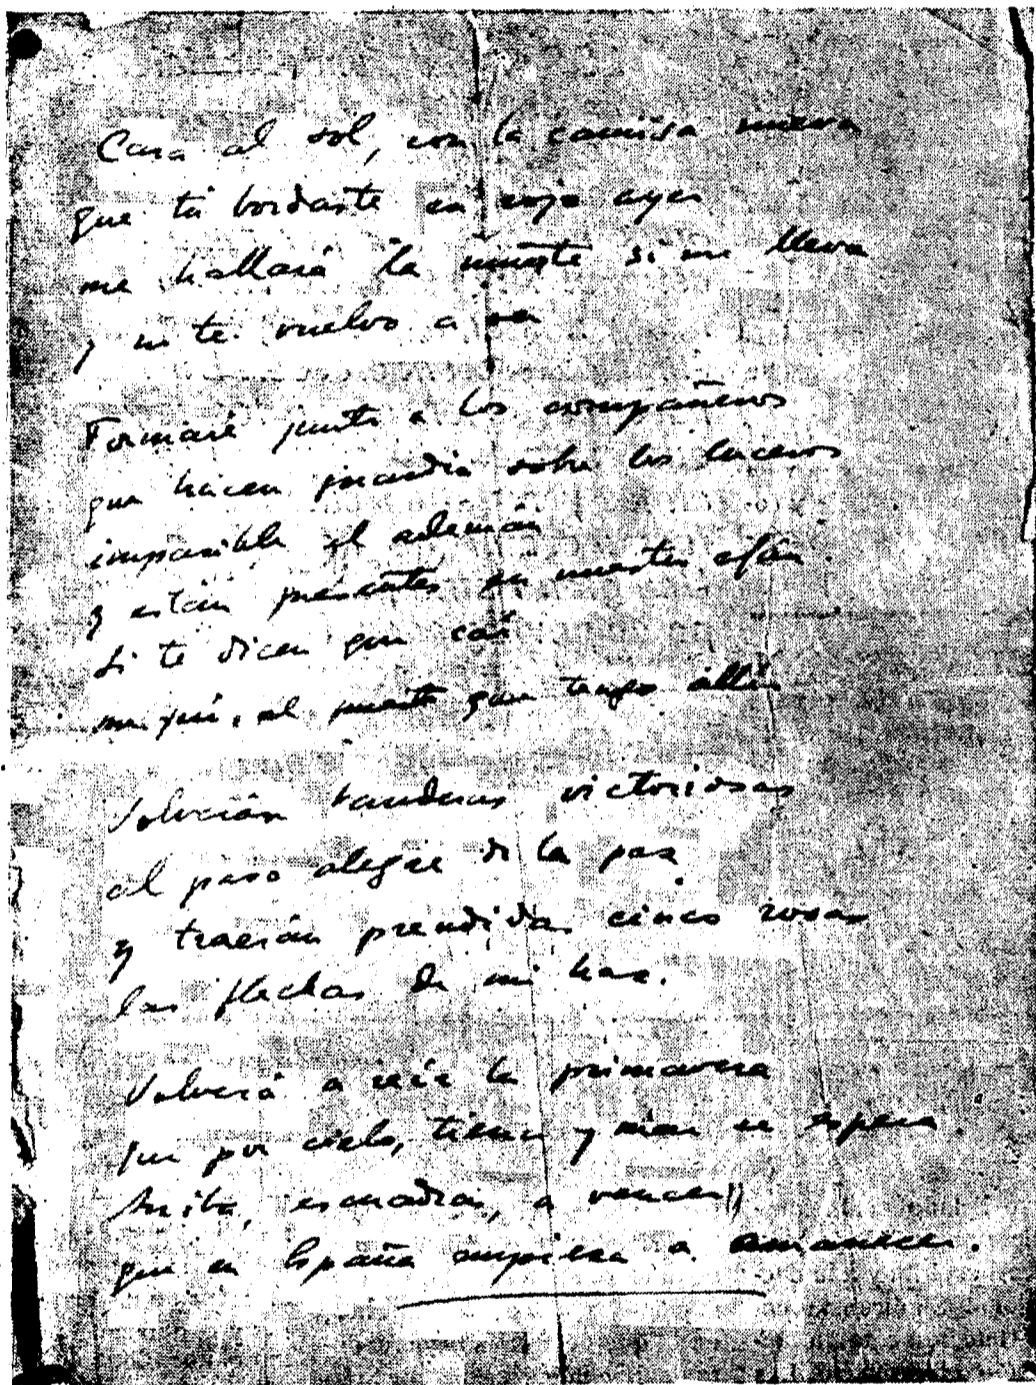 Cara al sol, con la camisa nueva
que tú bordaste en rojo ayer
me hallará la muerte si me lleva
y no te vuelvo a ver
Formaré junto a los compañeros
que hacen guardia sobre los luceros
impasible el ademán
y están presentes en nuestro afán.
Si te dicen que caí
me fui, al puesto que tengo allí
Volverán banderas victoriosas
al paso alegre de la paz
y traerán prendidas cinco rosas
las flechas de mi haz.
Volverá a reír la primavera
que por cielo, tierra y mar se espera.
Arriba, escuadras, a vencer!!
que en España empieza a amanecer.